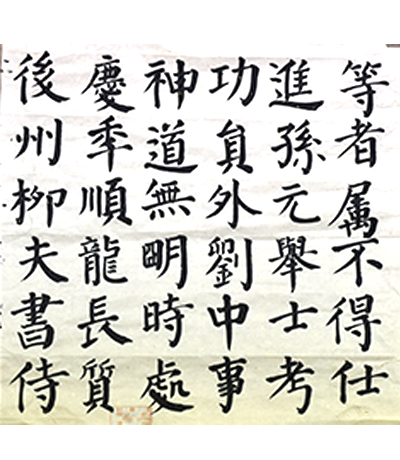 等者属不得仕
進孫元舉士考
功員外劉中事
神道無明時處
慶季順龍長質
後州柳夫書侍